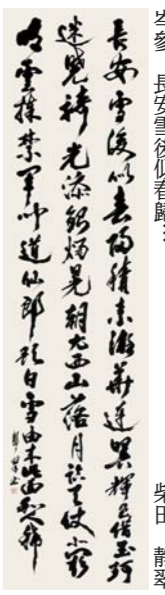 岑參　長安雪後似春歸…　柴田　静翠
長安雪後似春歸積素凝華連曙輝色借玉珂
迷曉騎光添銀燭晃朝衣西山落月臨天仗北闕
晴雲捧禁闈聞道仙郎歌白雪由来此曲和人稀